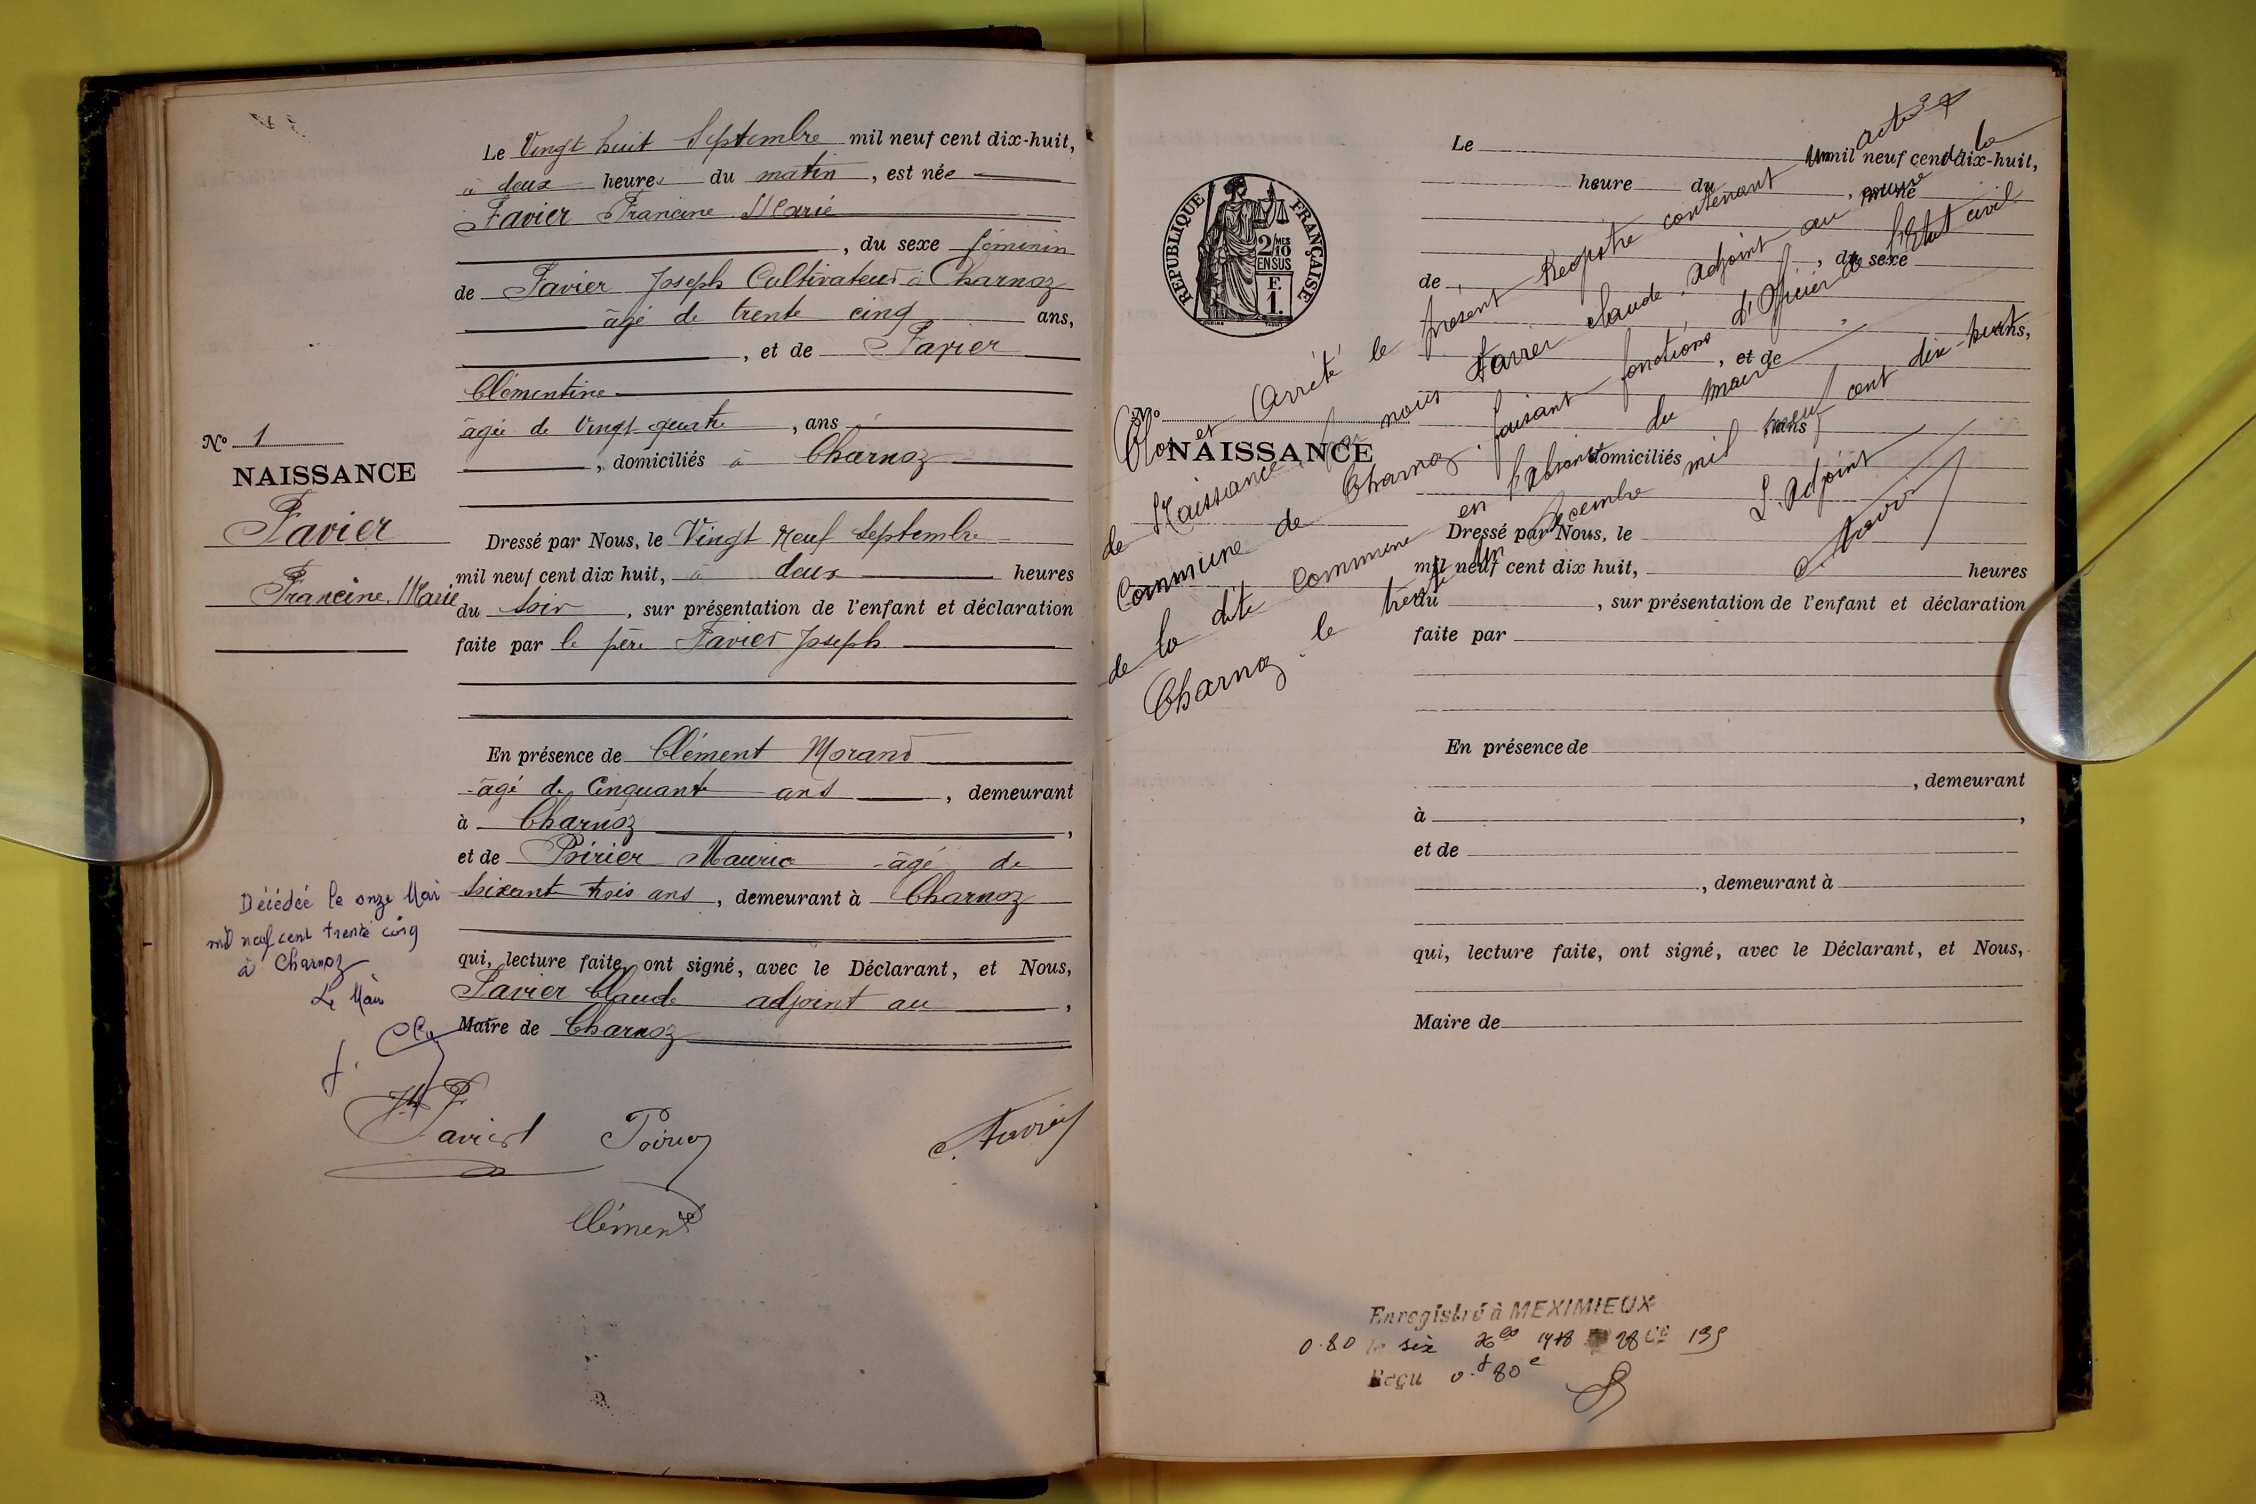 Le Vingt huit Septembre mil neuf cent dix-huit,
à deux heures du matin, est née
Favier Francine Marie
, du sexe féminin
de Favier Joseph Cultivateur à Charnoz
âgé de trente cinq ans,
, et de Favier
Clémentine
âgée de Vingt quatre, ans
, domiciliés à Charnoz
No 1
NAISSANCE
Favier
Francine Marie
Dressé par Nous, le Vingt Neuf Septembre
mil neuf cent dix huit, à deux heures
du soir, sur présentation de l'enfant et déclaration
faite par le père Favier Joseph
En présence de Clément Morand
âgé de Cinquante ans, demeurant
à Charnoz,
et de Maurice âgé de
soixante trois ans, demeurant à Charnoz
qui, lecture faite, ont signé, avec le Déclarant, et Nous,
Favier Claude adjoint au,
Maire de Charnoz
Décédée le onze Mai
mil neuf cent trente cinq
à Charnoz
Le Maire
Favier
Clément
C. Favier
REPUBLIQUE FRANÇAISE
2/10 MES
EN SUS
F.
1.
Le mil neuf cent dix-huit,
heure du, est né
, du sexe
de
ans,
, et de
ans
domiciliés
No
NAISSANCE
Dressé par Nous, le
mil neuf cent dix huit, heures
du, sur présentation de l'enfant et déclaration
faite par
En présence de
, demeurant
à,
et de
, demeurant à
qui, lecture faite, ont signé, avec le Déclarant, et Nous,
Maire de
Clos et Arrêté le présent Registre contenant un acte
de Naissance par nous Favier Claude Adjoint au maire de la
Commune de Charnoz faisant fonctions d'Officier de l'Etat civil
de la dite Commune en l'absence du Maire
Charnoz le trente un Décembre mil neuf cent dix-huit
L'Adjoint
C. Favier
Enregistré à MEXIMIEUX
0.80 le six
Reçu 0 f 80 c